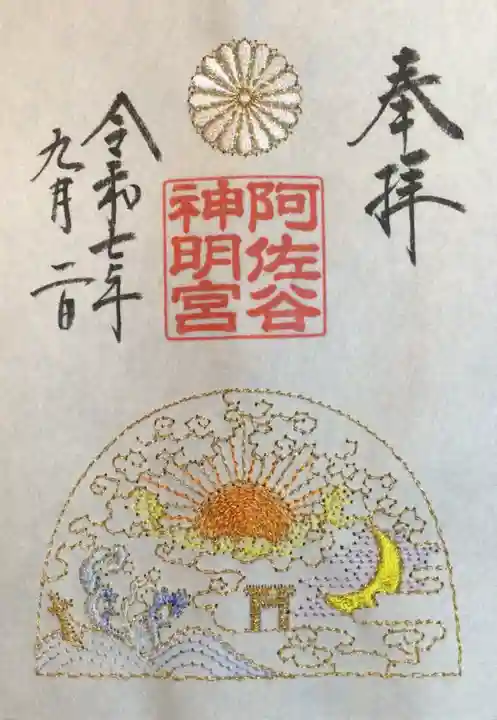 奉拝
阿佐谷
神明宮
令和七年
九月二日